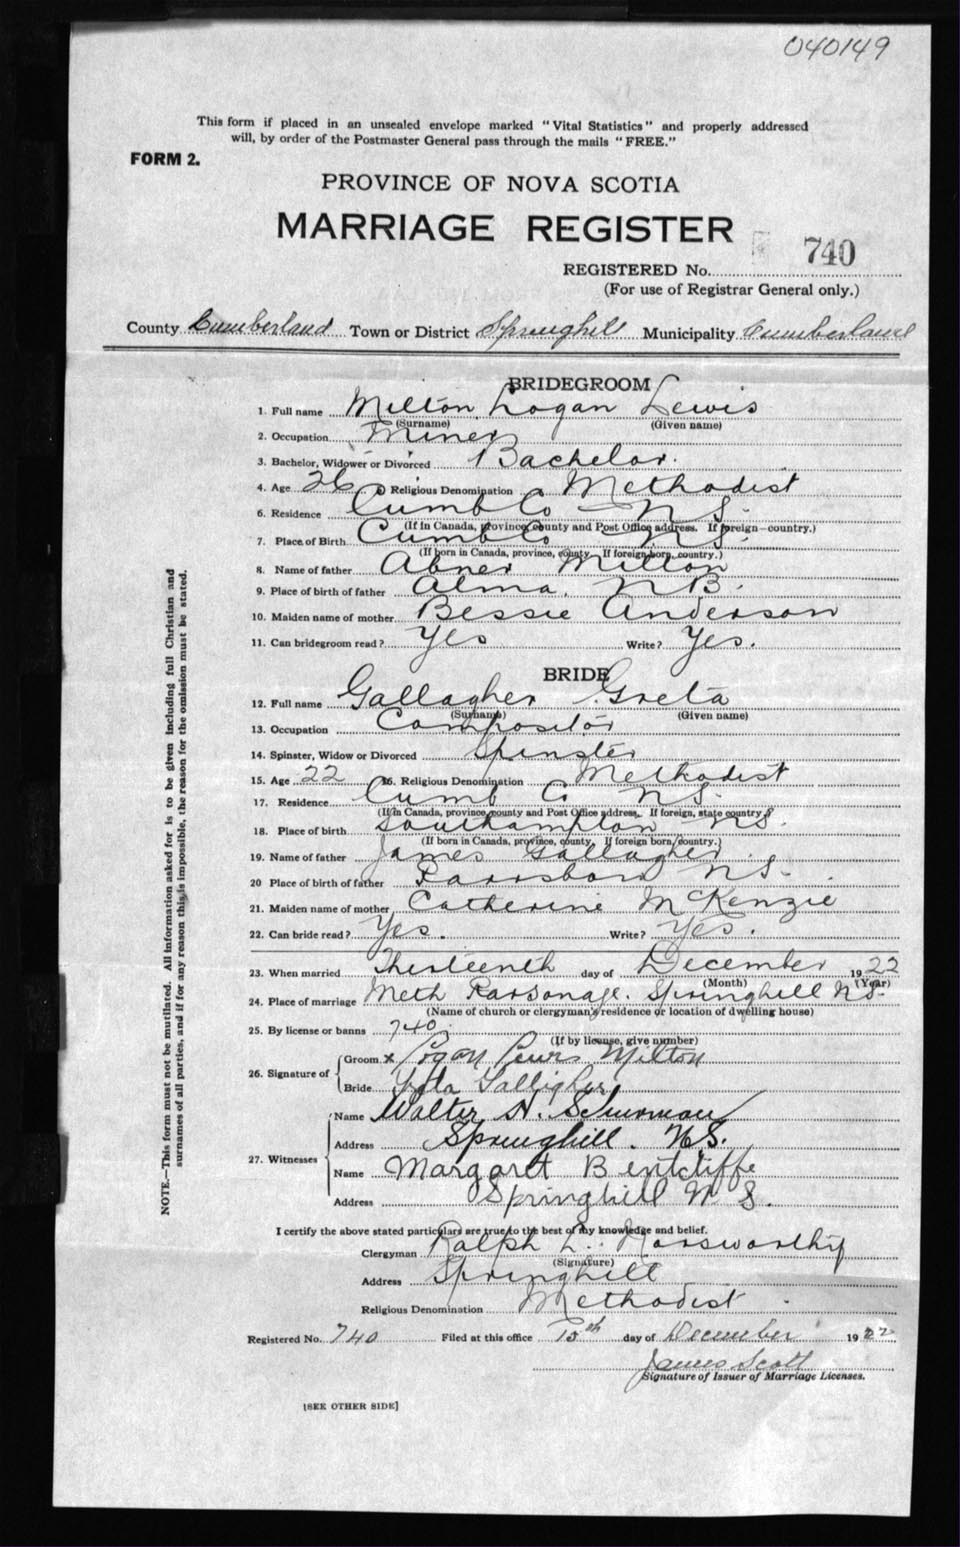 040149
This form if placed in an unsealed envelope marked "Vital Statistics" and properly addressed
will, by order of the Postmaster General pass through the mails "FREE."
FORM 2.
PROVINCE OF NOVA SCOTIA
MARRIAGE REGISTER
REGISTERED No. 740
(For use of Registrar General only.)
County Cumberland Town or District Springhill Municipality Cumberland
BRIDEGROOM
1. Full name Milton Logan Lewis
(Surname) (Given name)
2. Occupation Miner
3. Bachelor, Widower or Divorced Bachelor.
4. Age 26 Religious Denomination Methodist
6. Residence Cumb Co N S.
(If in Canada, province, county and Post Office address. If foreign—country.)
7. Place of Birth Cumb Co N S.
(If born in Canada, province, county. If foreign born, country.)
8. Name of father Abner Milton
9. Place of birth of father Alma, N B.
10. Maiden name of mother Bessie Anderson
11. Can bridegroom read? Yes Write? Yes.
BRIDE
12. Full name Gallagher Greta
(Surname) (Given name)
13. Occupation Compositor
14. Spinster, Widow or Divorced Spinster
15. Age 22 16. Religious Denomination Methodist
17. Residence Cumb Co NS.
(If in Canada, province, county and Post Office address. If foreign, state country.)
18. Place of birth Southampton NS.
(If born in Canada, province, county. If foreign born country.)
19. Name of father James Gallagher.
20 Place of birth of father Parrsboro NS.
21. Maiden name of mother Catherine McKenzie
22. Can bride read? Yes. Write? Yes.
23. When married Thirteenth day of December 1922
(Month) (Year)
24. Place of marriage Meth Parsonage. Springhill NS.
(Name of church or clergyman's residence or location of dwelling house)
25. By license or banns 740
(If by license, give number)
26. Signature of
Groom x Logan Lewis Milton
Bride Galligher
27. Witnesses
Name Walter H. Schurman
Address Springhill. N.S.
Name Margaret Bentcliffe
Address Springhill N S.
I certify the above stated particulars are true to the best of my knowledge and belief.
Clergyman Ralph L.
(Signature)
Address Springhill
Religious Denomination Methodist
Registered No. 740 Filed at this office 15th day of December 1922
James Scott
Signature of Issuer of Marriage Licenses.
[SEE OTHER SIDE]
NOTE.—This form must not be mutilated. All information asked for is to be given including full Christian and
surnames of all parties, and if for any reason this is impossible, the reason for the omission must be stated.